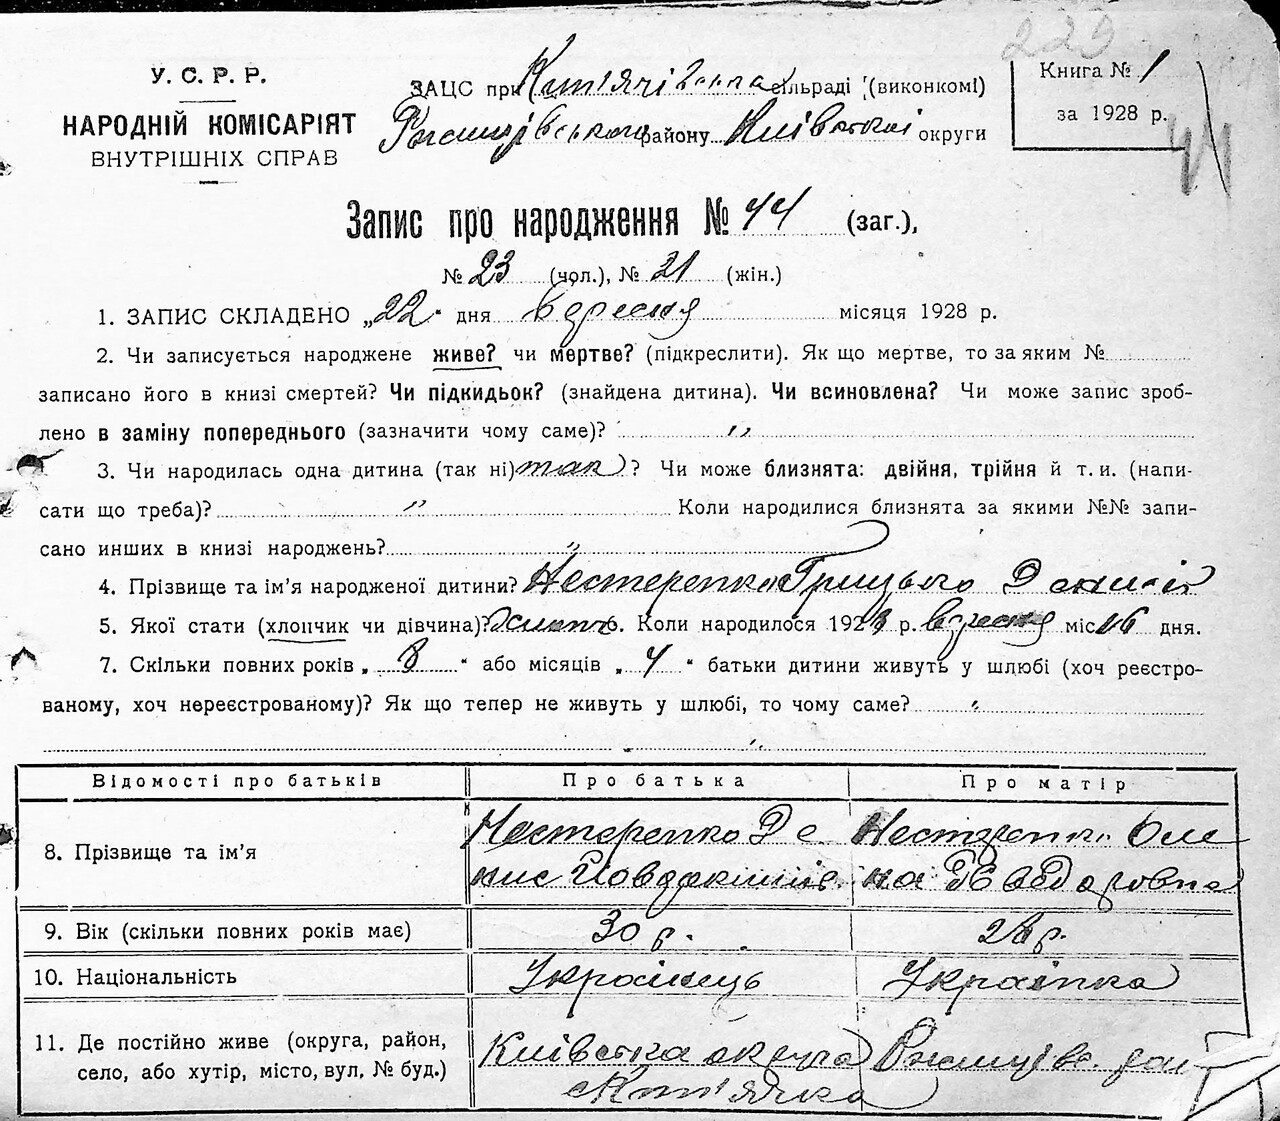 229
У. С. Р. Р.
НАРОДНІЙ КОМІСАРІЯТ
ВНУТРІШНІХ СПРАВ
ЗАЦС при сільраді (виконкомі)
району Київської округи
Книга № 1
за 1928 р.
44
Запис про народження № 44 (заг.),
№ 23 (чол.), № 21 (жін.)
1. ЗАПИС СКЛАДЕНО „22" дня вересня місяця 1928 р.
2. Чи записується народжене живе? чи мертве? (підкреслити). Як що мертве, то за яким №
записано його в книзі смертей? Чи підкидьок? (знайдена дитина). Чи всиновлена? Чи може запис зроб-
лено в заміну попереднього (зазначити чому саме)? "
3. Чи народилась одна дитина (так ні) так )? Чи може близнята: двійня, трійня й т. и. (напи-
сати що треба)? " Коли народилися близнята за якими №№ запи-
сано инших в книзі народжень? "
4. Прізвище та ім'я народженої дитини? Нестеренко Грицько
5. Якої стати (хлопчик чи дівчина)? 6. Коли народилося 1928 р. вересня міс 16 дня.
7. Скільки повних років „ 8 " або місяців „ 4 " батьки дитини живуть у шлюбі (хоч реєстро-
ваному, хоч нереєстрованому)? Як що тепер не живуть у шлюбі, то чому саме? "
"
Відомості про батьків Про батька Про матір
8. Прізвище та ім'я Нестеренко Де Нестеренко
нис
9. Вік (скільки повних років має) 30 р. 28 р.
10. Національність Українець Українка
11. Де постійно живе (округа, район, Київська округа
село, або хутір, місто, вул. № буд.)